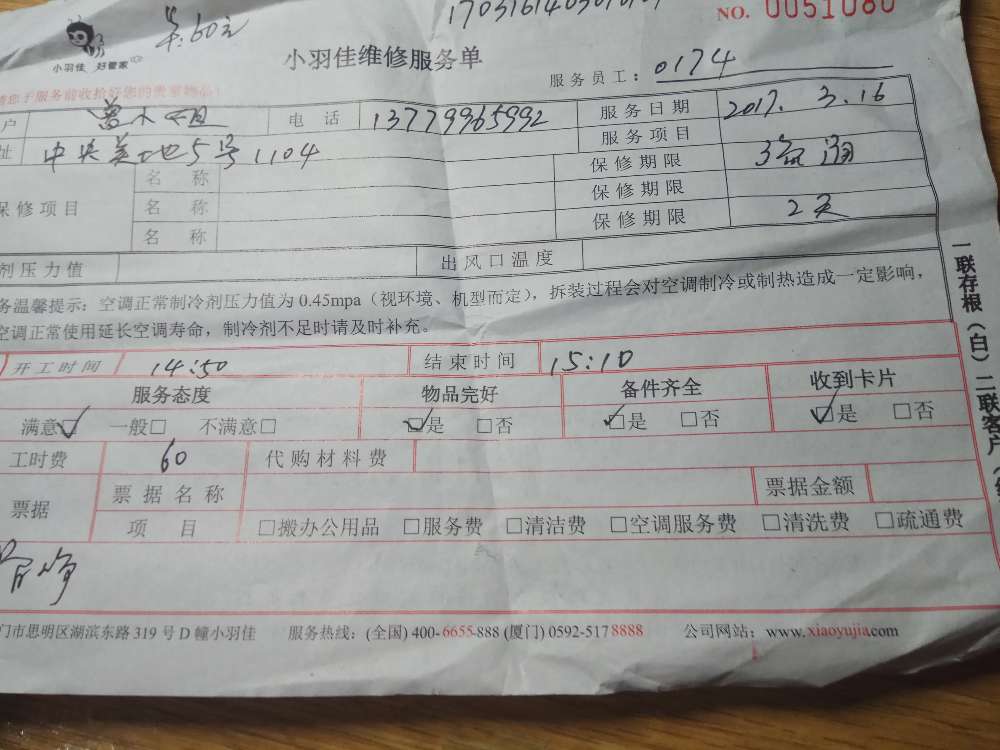 60元
NO. 0051080
小羽佳 好管家
小羽佳维修服务单
服务员工: 0174
请您于服务前收拾好您的贵重物品!
户 曾小姐 电 话 13779965992 服务日期 2017. 3. 16
址 中央美地5号1104 服务项目
保修项目 名 称 保修期限
名 称 保修期限
名 称 保修期限 2天
剂压力值 出风口温度
务温馨提示: 空调正常制冷剂压力值为 0.45mpa (视环境、机型而定), 拆装过程会对空调制冷或制热造成一定影响,
空调正常使用延长空调寿命, 制冷剂不足时请及时补充。
开工时间 14:50 结束时间 15:10
服务态度 物品完好 备件齐全 收到卡片
满意☑ 一般□ 不满意□ ☑是 □否 ☑是 □否 ☑是 □否
工时费 60 代购材料费
票据 票据名称 票据金额
项 目 □搬办公用品 □服务费 □清洁费 □空调服务费 □清洗费 □疏通费
门市思明区湖滨东路 319 号 D 幢小羽佳 服务热线: (全国) 400-6655-888 (厦门) 0592-5178888 公司网站: www.xiaoyujia.com
一联存根(白) 二联客户(